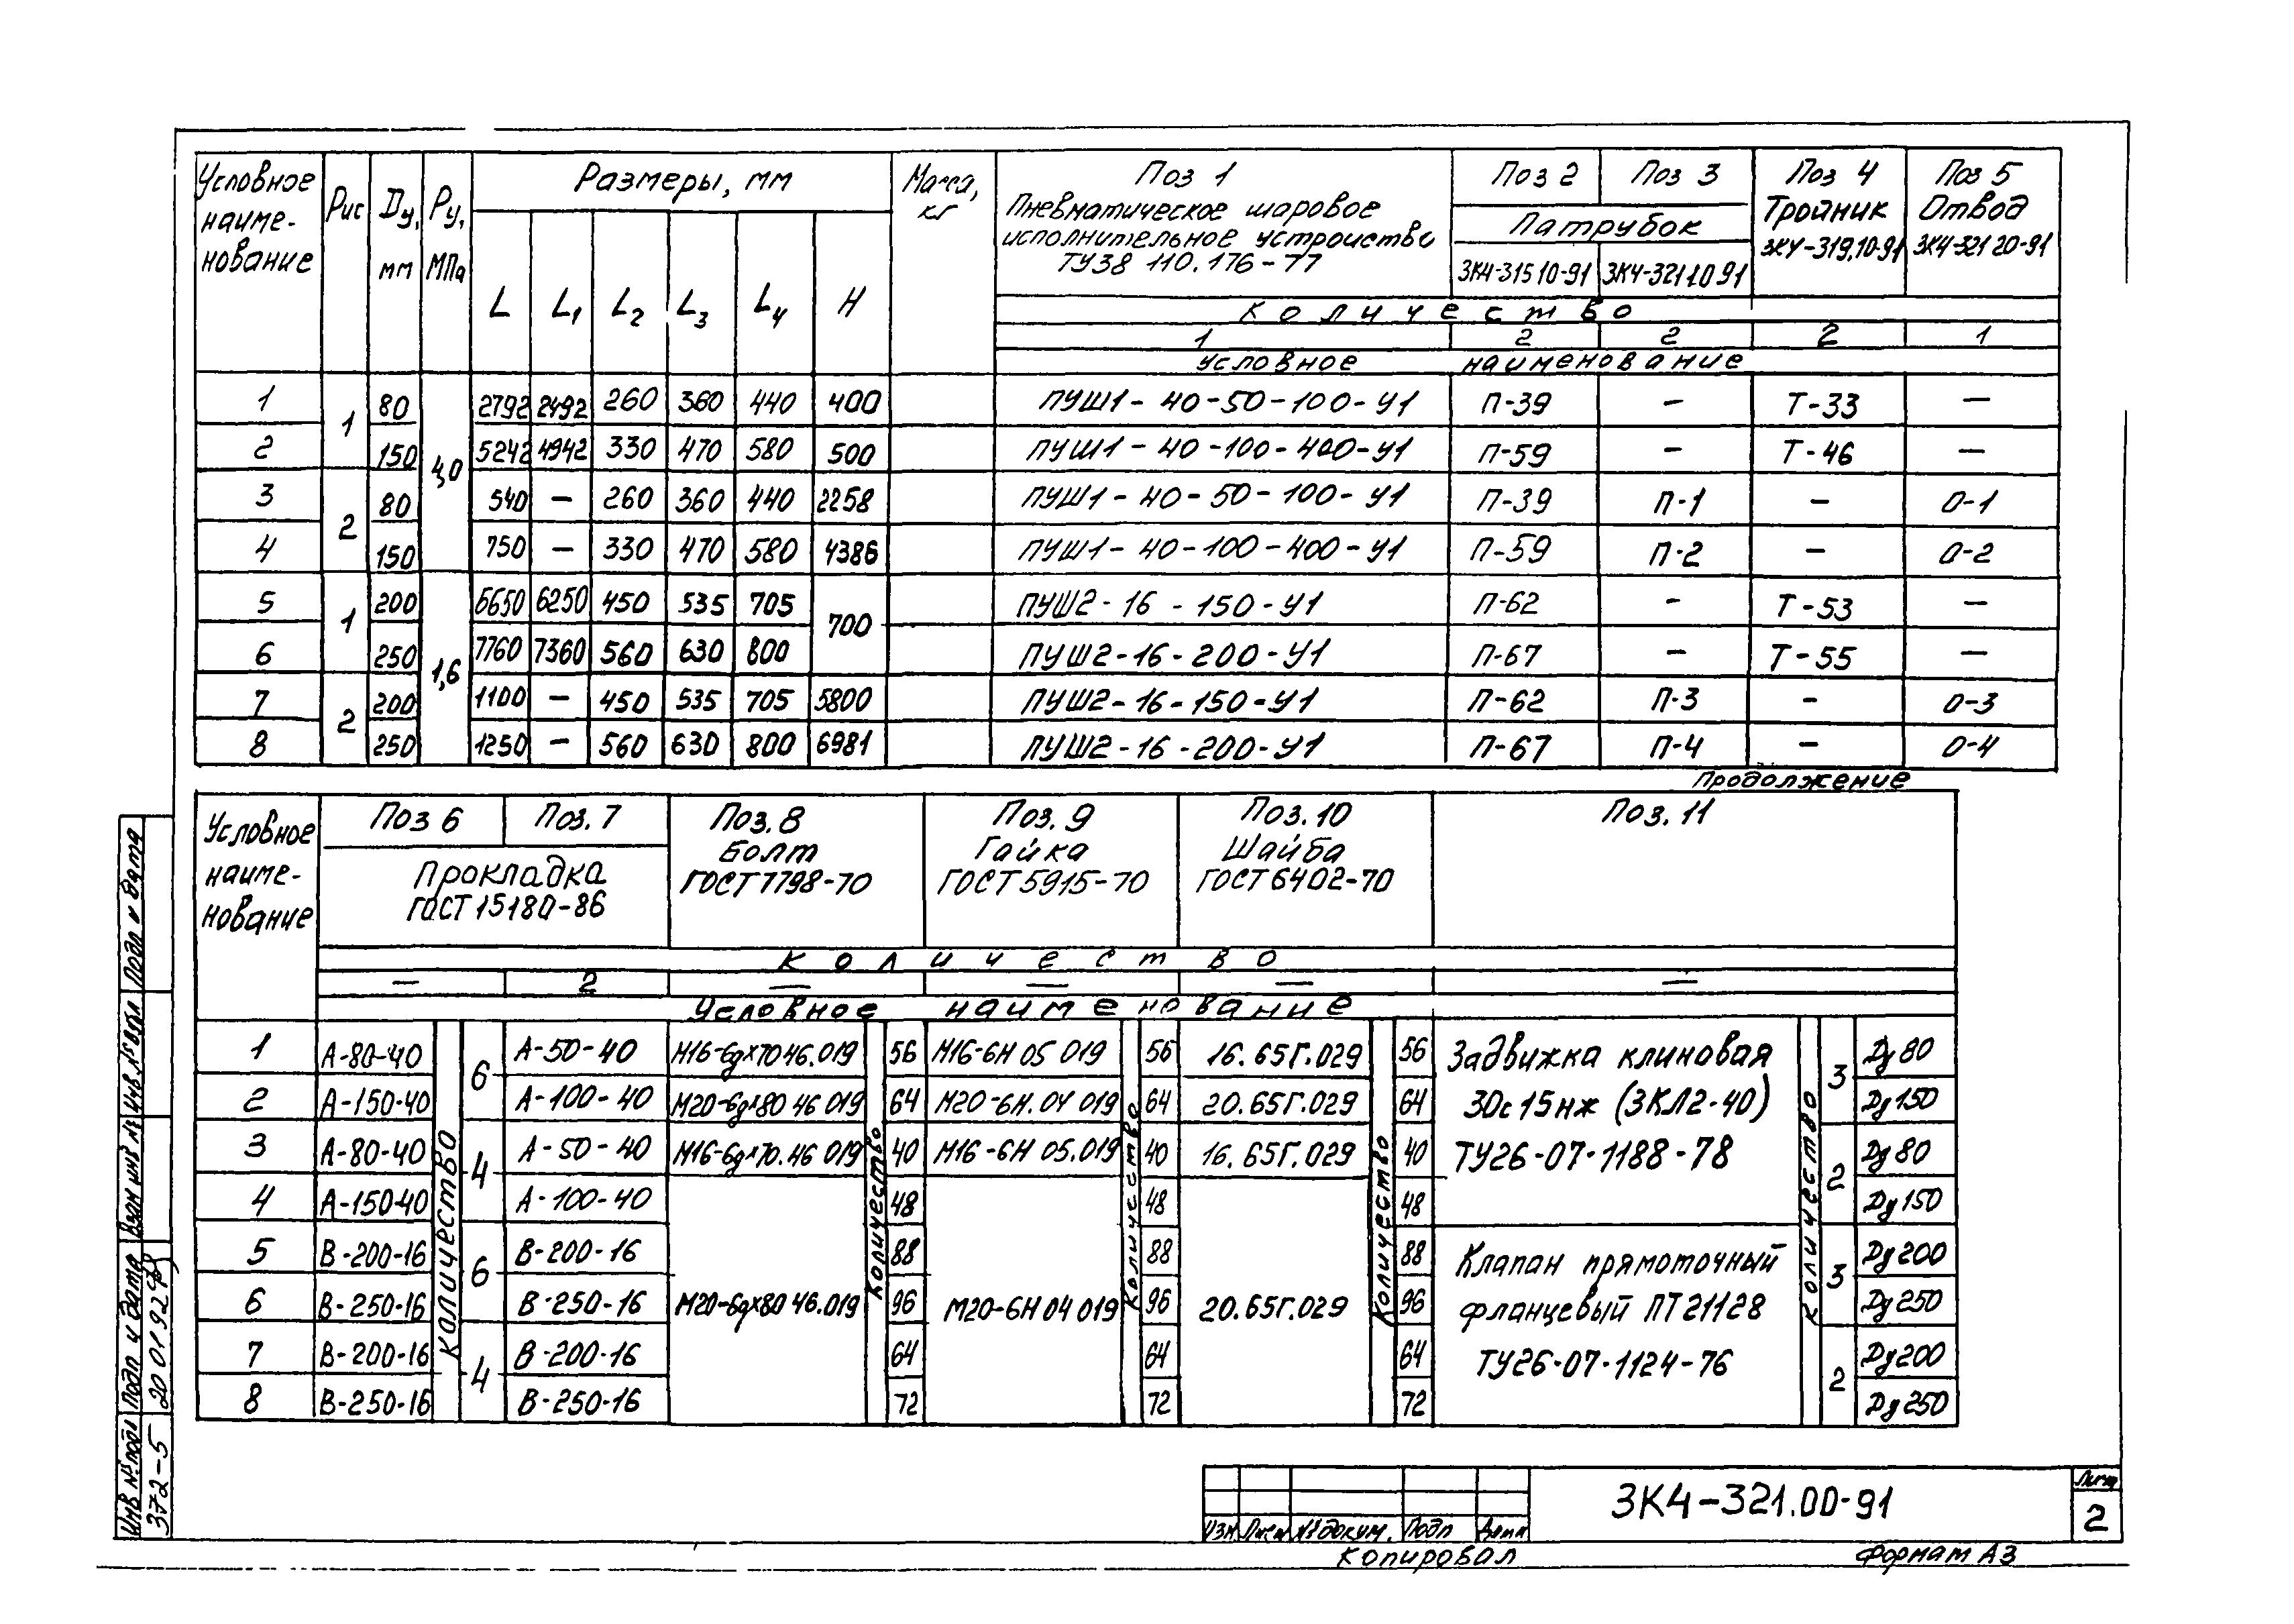 Условное наиме- нование | Рис | Dу, мм | Pу, МПа | Размеры, мм | Масса, кг | Поз 1 | Поз 2 | Поз 3 | Поз 4 | Поз 5
Пневматическое шаровое исполнительное устройство ТУ38 110.176-77 | Патрубок | Тройник | Отвод
ЗК4-315 10-91 | ЗК4-321 10 91 | ЗК4-319.10-91 | ЗК4-321 20-91
L | L1 | L2 | L3 | L4 | H
Количество
1 | 2 | 2 | 2 | 1
Условное наименование
1 | 1 | 80 | 4,0 | 2792 | 2492 | 260 | 360 | 440 | 400 | ПУШ1-40-50-100-У1 | П-39 | – | Т-33 | –
2 | 150 | 5242 | 4942 | 330 | 470 | 580 | 500 | ПУШ1-40-100-400-У1 | П-59 | – | Т-46 | –
3 | 2 | 80 | 540 | – | 260 | 360 | 440 | 2258 | ПУШ1-40-50-100-У1 | П-39 | П-1 | – | О-1
4 | 150 | 750 | – | 330 | 470 | 580 | 4386 | ПУШ1-40-100-400-У1 | П-59 | П-2 | – | О-2
5 | 1 | 200 | 1,6 | 6650 | 6250 | 450 | 535 | 705 | 700 | ПУШ2-16-150-У1 | П-62 | – | Т-53 | –
6 | 250 | 7760 | 7360 | 560 | 630 | 800 | ПУШ2-16-200-У1 | П-67 | – | Т-55 | –
7 | 2 | 200 | 1100 | – | 450 | 535 | 705 | 5800 | ПУШ2-16-150-У1 | П-62 | П-3 | – | О-3
8 | 250 | 1250 | – | 560 | 630 | 800 | 6981 | ПУШ2-16-200-У1 | П-67 | П-4 | – | О-4
Продолжение
Условное наиме- нование | Поз 6 | Поз. 7 | Поз. 8 | Поз. 9 | Поз. 10 | Поз. 11
Прокладка ГОСТ 15180-86 | Болт ГОСТ 7798-70 | Гайка ГОСТ 5915-70 | Шайба ГОСТ 6402-70
Количество
– | 2 | – | – | – | –
Условное наименование
1 | А-80-40 | Количество | 6 | А-50-40 | М16-6gx70 46.019 | Количество | 56 | М16-6Н 05 019 | Количество | 56 | 16.65Г.029 | Количество | 56 | Задвижка клиновая | Количество | 3 | Dу 80
2 | А-150-40 | А-100-40 | М20-6gx80 46 019 | 64 | М20-6Н.04 019 | 64 | 20.65Г.029 | 64 | 30с15нж (ЗКЛ2-40) | Dу 150
3 | А-80-40 | 4 | А-50-40 | М16-6gx70.46 019 | 40 | М16-6Н 05.019 | 40 | 16.65Г.029 | 40 | ТУ26-07-1188-78 | 2 | Dу 80
4 | А-150-40 | А-100-40 | 48 | 48 | 48 | Dу 150
5 | В-200-16 | 6 | В-200-16 | 88 | 88 | 88 | Клапан прямоточный | 3 | Dу 200
6 | В-250-16 | В-250-16 | М20-6gx80 46.019 | 96 | М20-6Н 04 019 | 96 | 20.65Г.029 | 96 | фланцевый ПТ21128 | Dу 250
7 | В-200-16 | 4 | В-200-16 | 64 | 64 | 64 | ТУ26-07-1124-76 | 2 | Dу 200
8 | В-250-16 | В-250-16 | 72 | 72 | 72 | Dу 250
Инв № подл | Подп и дата | Взам инв № | Инв. № дубл | Подп и дата
372-5 | 20 01 92
Изм | Лист | № докум. | Подп | Дата
ЗК4-321.00-91
Лист
2
Копировал
Формат А3